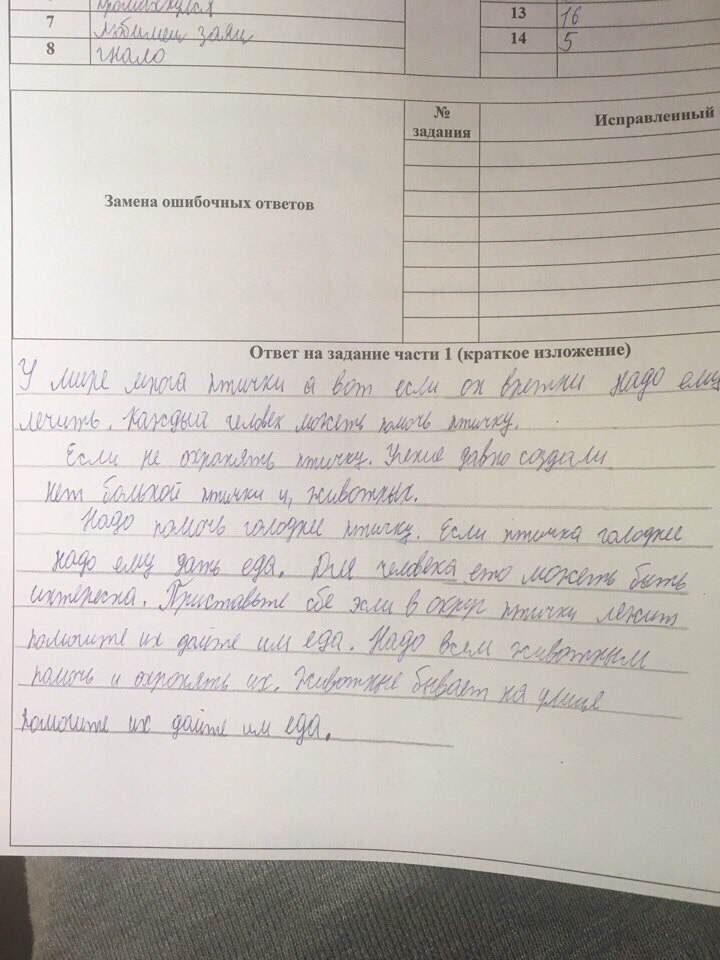 7 любимец заяц 13 16
8 гнало 14 5
№ задания Исправленный
Замена ошибочных ответов
Ответ на задание части 1 (краткое изложение)
У мире многа птички а вот если он надо ему
лечить. Каждый человек можеть помочь птичку.
Если не охранять птичку. Учение давно создали
нет большой птички и, животных.
Надо помочь голоднее птичку. Если птичка голоднее
надо ему дать еда. Для человека ето можеть быть
интересна. Приставьте сбе эсли в округ птички лежит
помогите их дайте им еда. Надо всем животным
помочь и охронять их. Животные бывает на улице
помогите их дайте им еда.